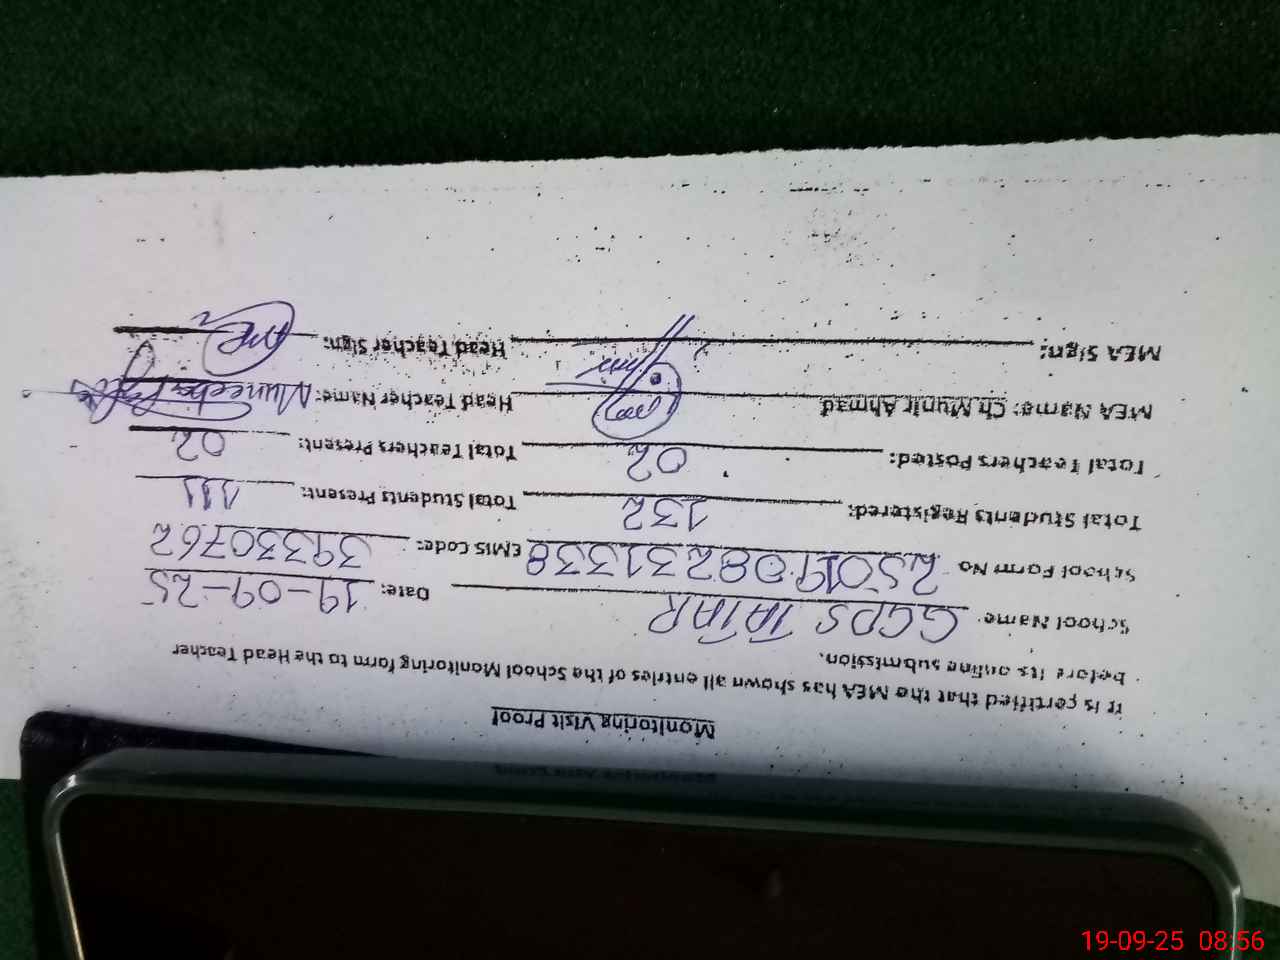 Monitoring Visit Proof
It is certified that the MEA has shown all entries of the School Monitoring form to the Head Teacher
before its online submission.
School Name GGPS TATAR Date: 19-09-25
School Form No 2501908231338 EMIS Code: 39330762
Total Students Registered: 132 Total Students Present: 111
Total Teachers Posted: 02 Total Teachers Present: 02
MEA Name: Ch Munir Ahmad Head Teacher Name: Muneeba
MEA Sign: Head Teacher Sign:
19-09-25 08:56